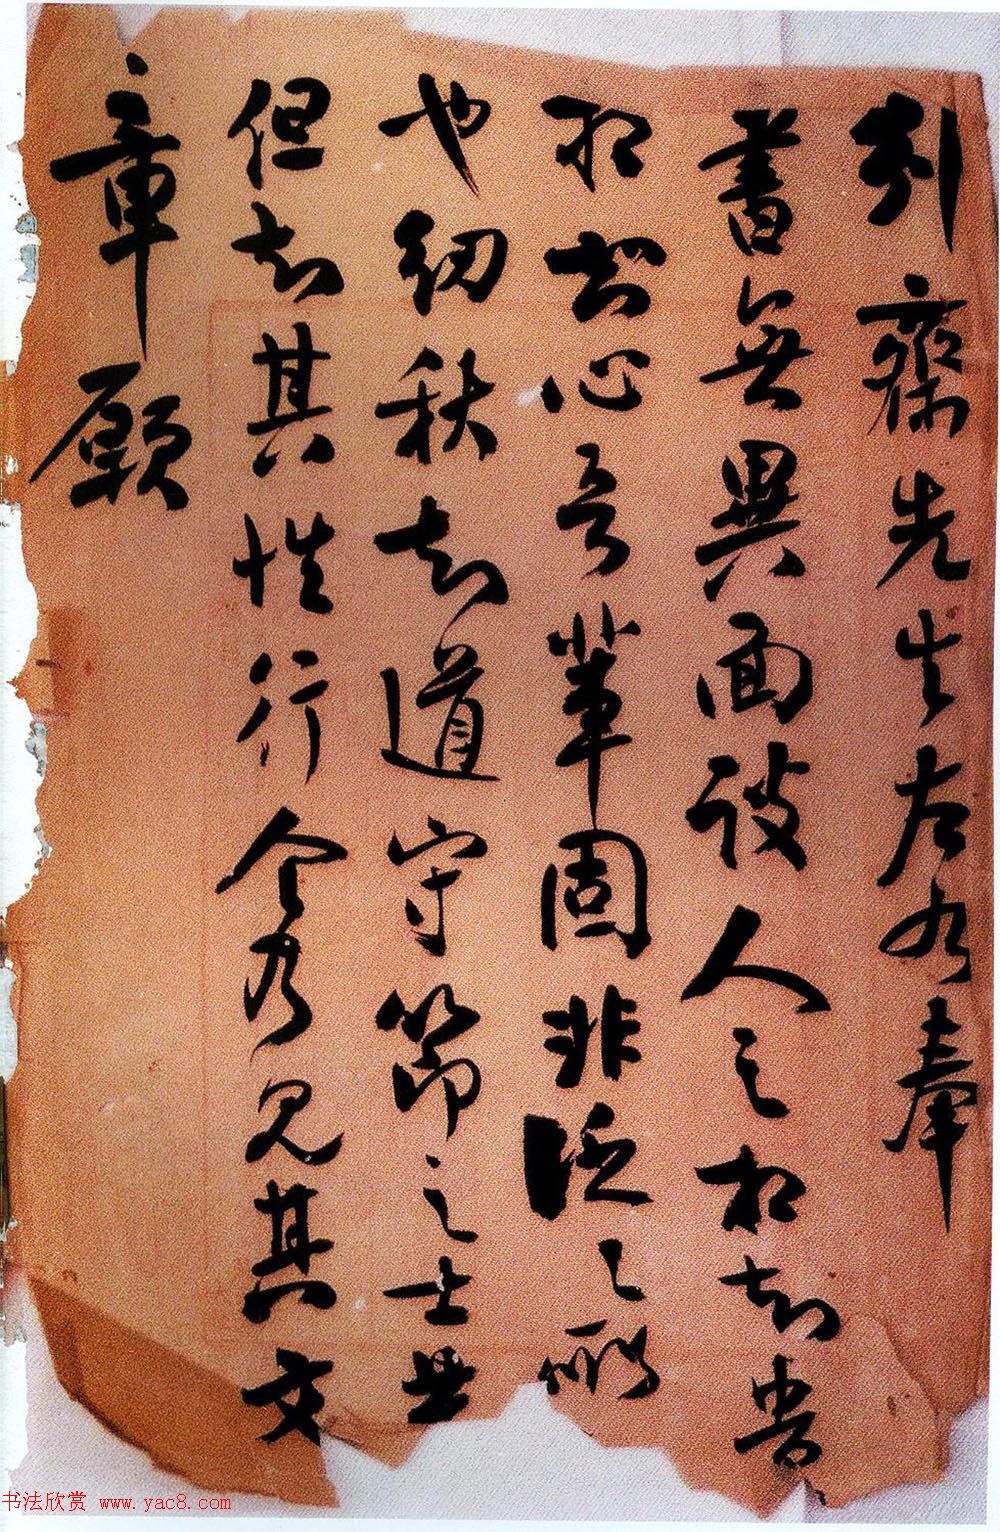 引齋先生左右奉
書無異面談人之相知貴
相知心吾輩固非泛泛
也幼秋知道守節之士世
但知其性行今乃見其文
章願
书法欣赏 www.yac8.com